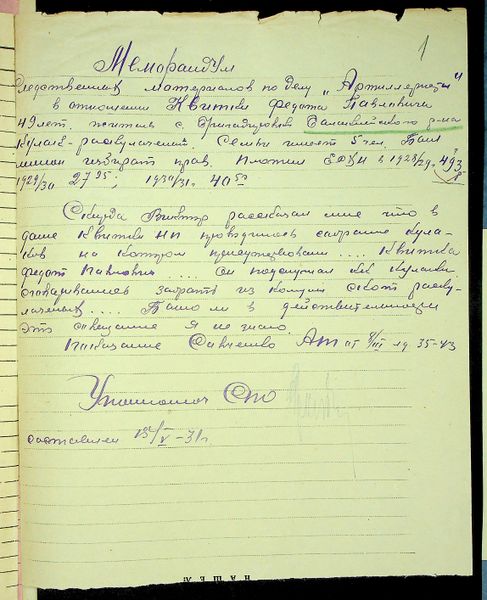 1
Меморандум
следственных материалов по делу „Артиллеристы"
в отношении Квитки Федота Павловича
49 лет. житель с. Бригадировка Балаклейского р-на
кулак-раскулаченный. Семьи имеет 5 чел. Был
лишен избират прав. Платил ЕСХН в 1928/29. 493
1929/30 2795, 1930/31. 40
Скирда Виктор рассказал мне что в
доме Квитки НП проводилось собрание кула-
ков на котором присутствовали .... Квитка
Федот Павлович .... Он подслушал как кулаки
сговаривались забрать из колхоза скот раску-
лаченных .... Было ли в действительности
это совещание я не знаю.
Показание Савченко от 8/III лд 35-43
Уполномоч СПО
составлен 12/V-31г.
НАШЕЛ